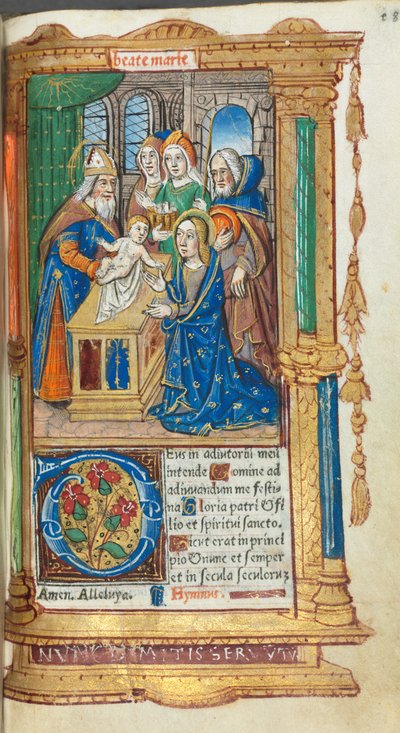 beate marie
Deus in adiutoriũ meũ
intende Domine ad
adiuvandum me festi-
na Gloria patri & fi
lio et spiritui sancto.
Sicut erat in princi
pio & nunc et semper
et in secula seculorũ
Amen. Alleluya. Hymnus.
NVNC DIMITIS SERVV TV